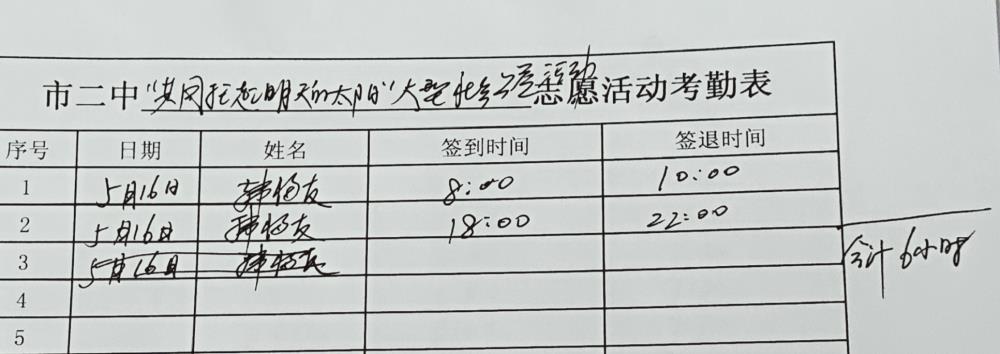 市二中"共同托起明天的太阳"大型社会公益活动志愿活动考勤表
序号 日期 姓名 签到时间 签退时间
1 5月16日 韩杨友 8:00 10:00
2 5月16日 韩杨友 18:00 22:00
3 5月16日 韩杨友
合计6小时
4
5